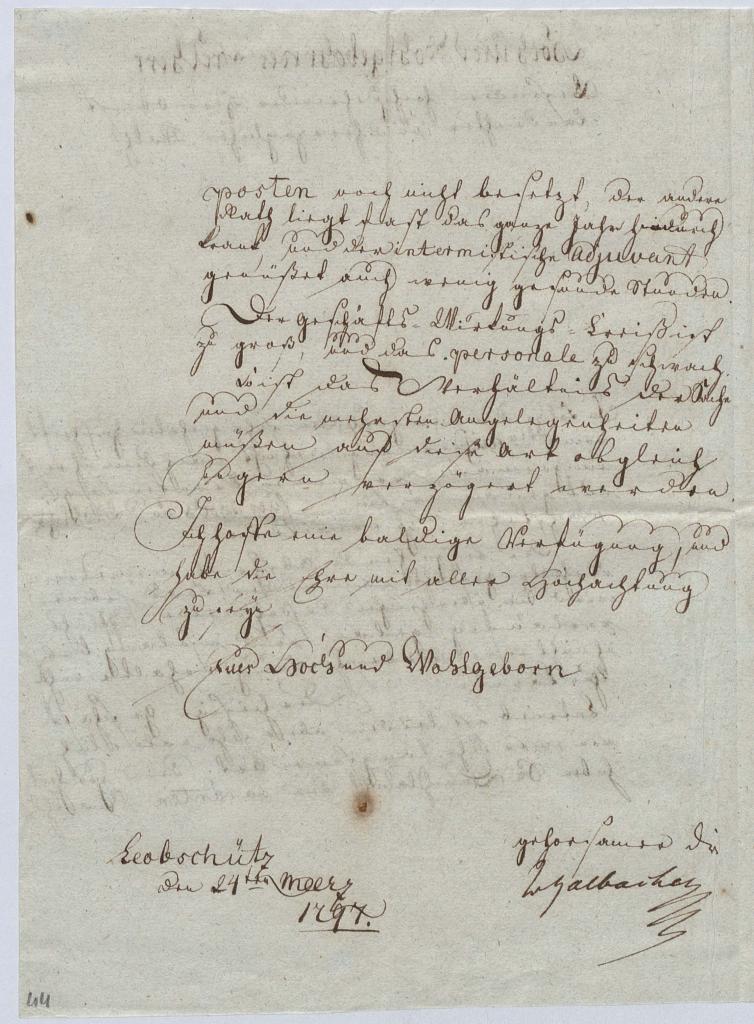 posten noch nicht besetzt, der andere
Rath liegt fast das ganze Jahr hindurch
krank, und der intermistische Adjuvant
genüßet auch wenig gesunde Stunden.
Der Geschäfts-Wirkungs-Kreiß ist
zu groß, und das personale zu schwach.
So ist das Verhältnis der Sache
und die mehrsten Angelegenheiten
müßen auf diese Art obgleich
ungern verzögert werden.
Ich hoffe eine baldige Verfügung, und
habe die Ehre mit aller Hochachtung
zu seyn
Euer Hoch und Wohlgeborn
gehorsamer Dr
Leobschütz
den 24ten Meerz
1797.
44